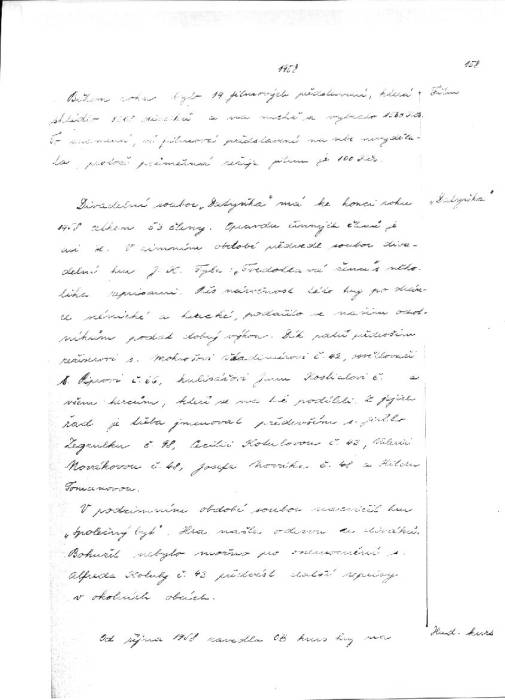 1958
158
Během roku bylo 19 filmových představení, která
Film
To znamená, že filmová představení na sebe nevydělá-
la, protože průměrná režie filmu je 100 Kčs.
Divadelní soubor „Dubynka" má ke konci roku
1958 celkem 53 členy. Opravdu činných členů je
V zimním období předvedl soubor diva-
delní hru J. K. Tyla: „Tvrdohlavá žena" s něko-
lika reprisami. Přes náročnost této hry po strán-
ce a herecké, podařilo se našim ochot-
níkům podat dobrý výkon. Dík patří především
režisérovi s. č. 42, osvětlovači
č. 66, kulisářovi Jura č. a
všem hercům, kteří se na hře podíleli. Z jejich
řad je třeba jmenovat především s. Jiřího
Zegzulku č. 98, Cecilii Kotulovou č. 42, Valerii
Novákovou č. 48, Josefa Nováka č. 48 a
Tomanovou.
V podzimním období soubor nacvičil hru
„Společný byt". Hra našla odezvu u diváků.
Bohužel nebylo možno po onemocnění s.
Alfreda Kotuly č. 43 předvést další reprisy
v okolních obcích.
Od října 1958 zavedla OB kurs hry na
Hud. kurs